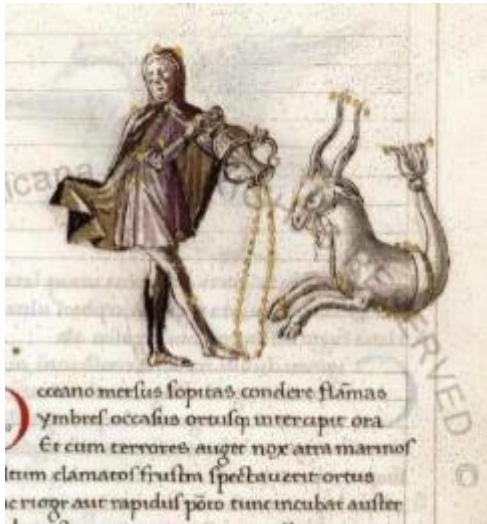 icana
ERVED
©
oceano mersus sopitas condere flāmas
ymbres occasus ortusq; intercipit ora
Et cum terrores auget nox atra marinos
ltum clamatos frustra spectauerit ortus
c rigor aut rapidus pōto tunc incubat auster